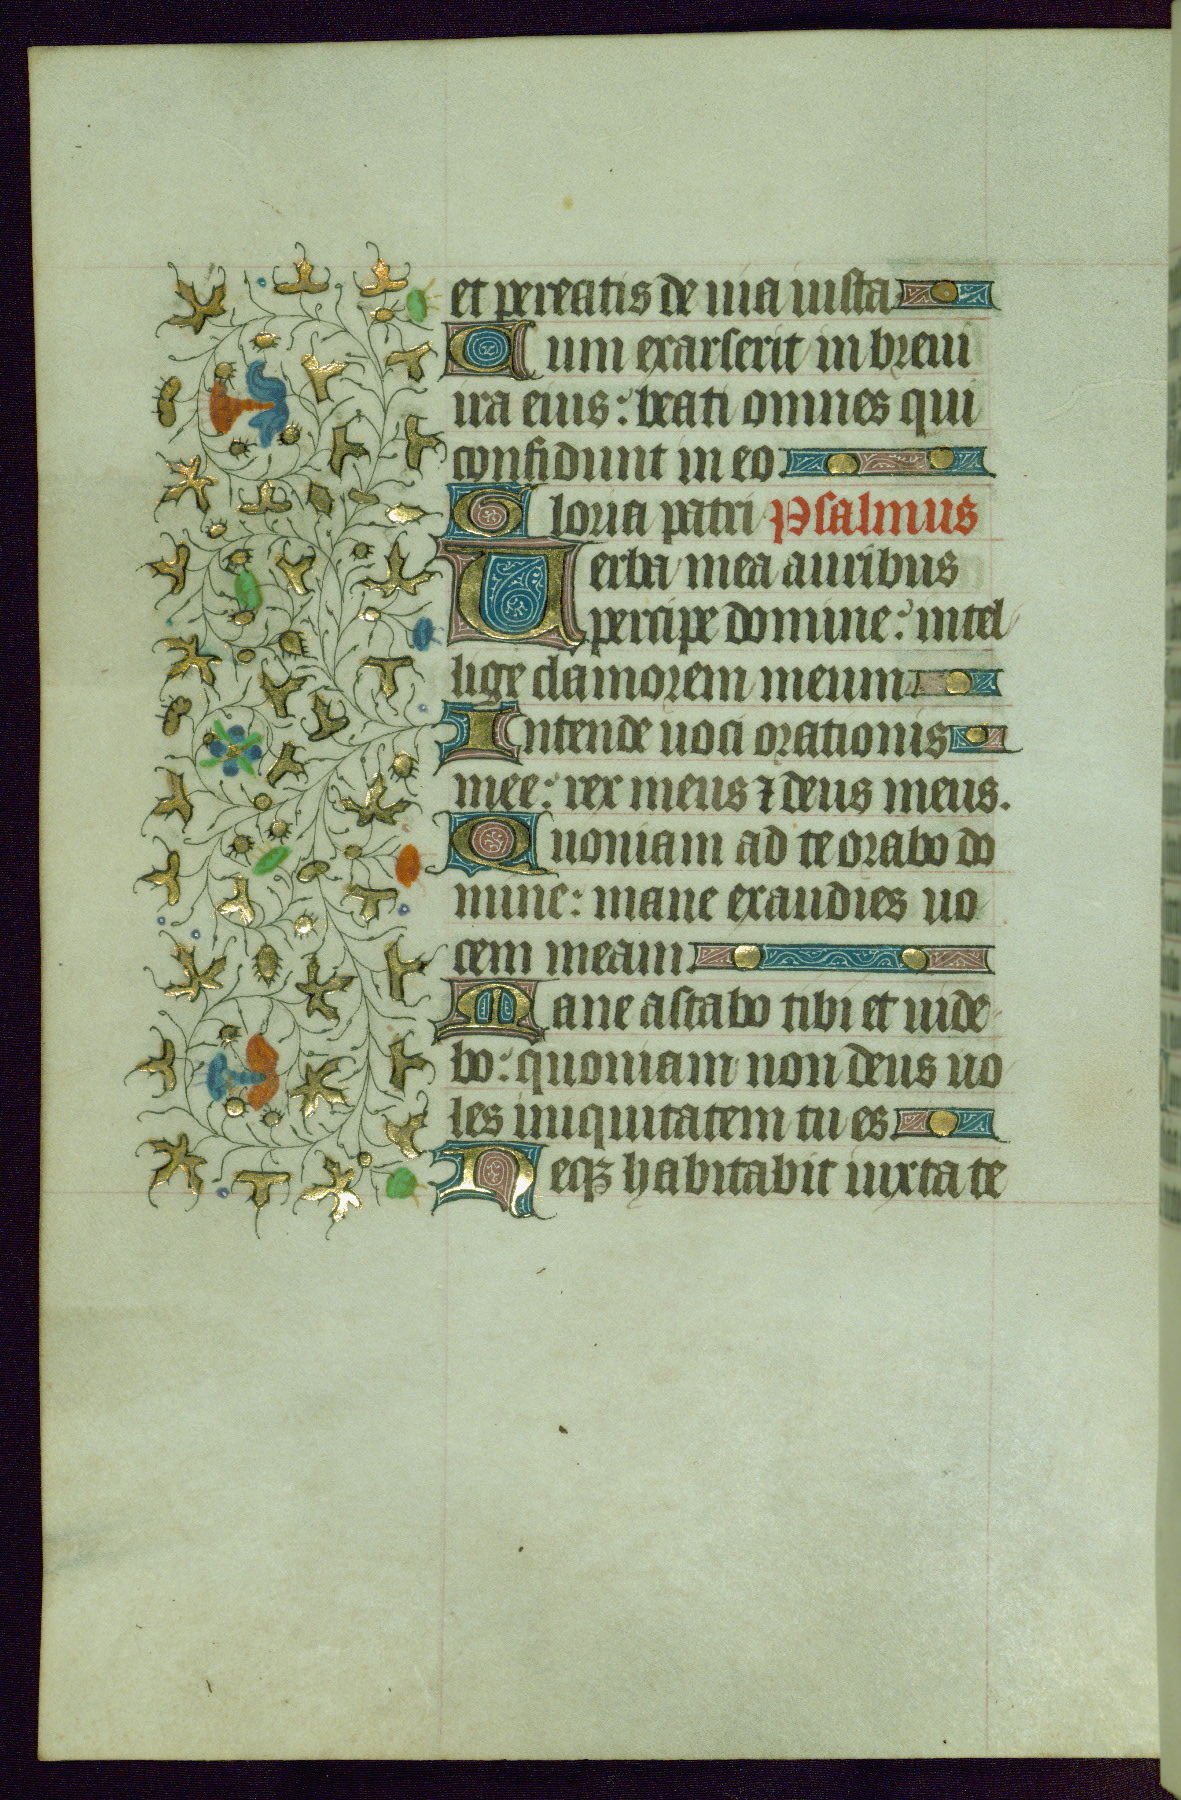 et pereatis de uia iusta
Cum exarserit in breui
ira eius: beati omnes qui
confidunt in eo
Gloria patri Psalmus
Verba mea auribus
percipe domine: intel
lige clamorem meum
Intende uoci orationis
mee: rex meus ⁊ deus meus.
Quoniam ad te orabo do
mine: mane exaudies uo
cem meam
Mane astabo tibi et uide
bo: quoniam non deus uo
les iniquitatem tu es
Neqꝫ habitabit iuxta te